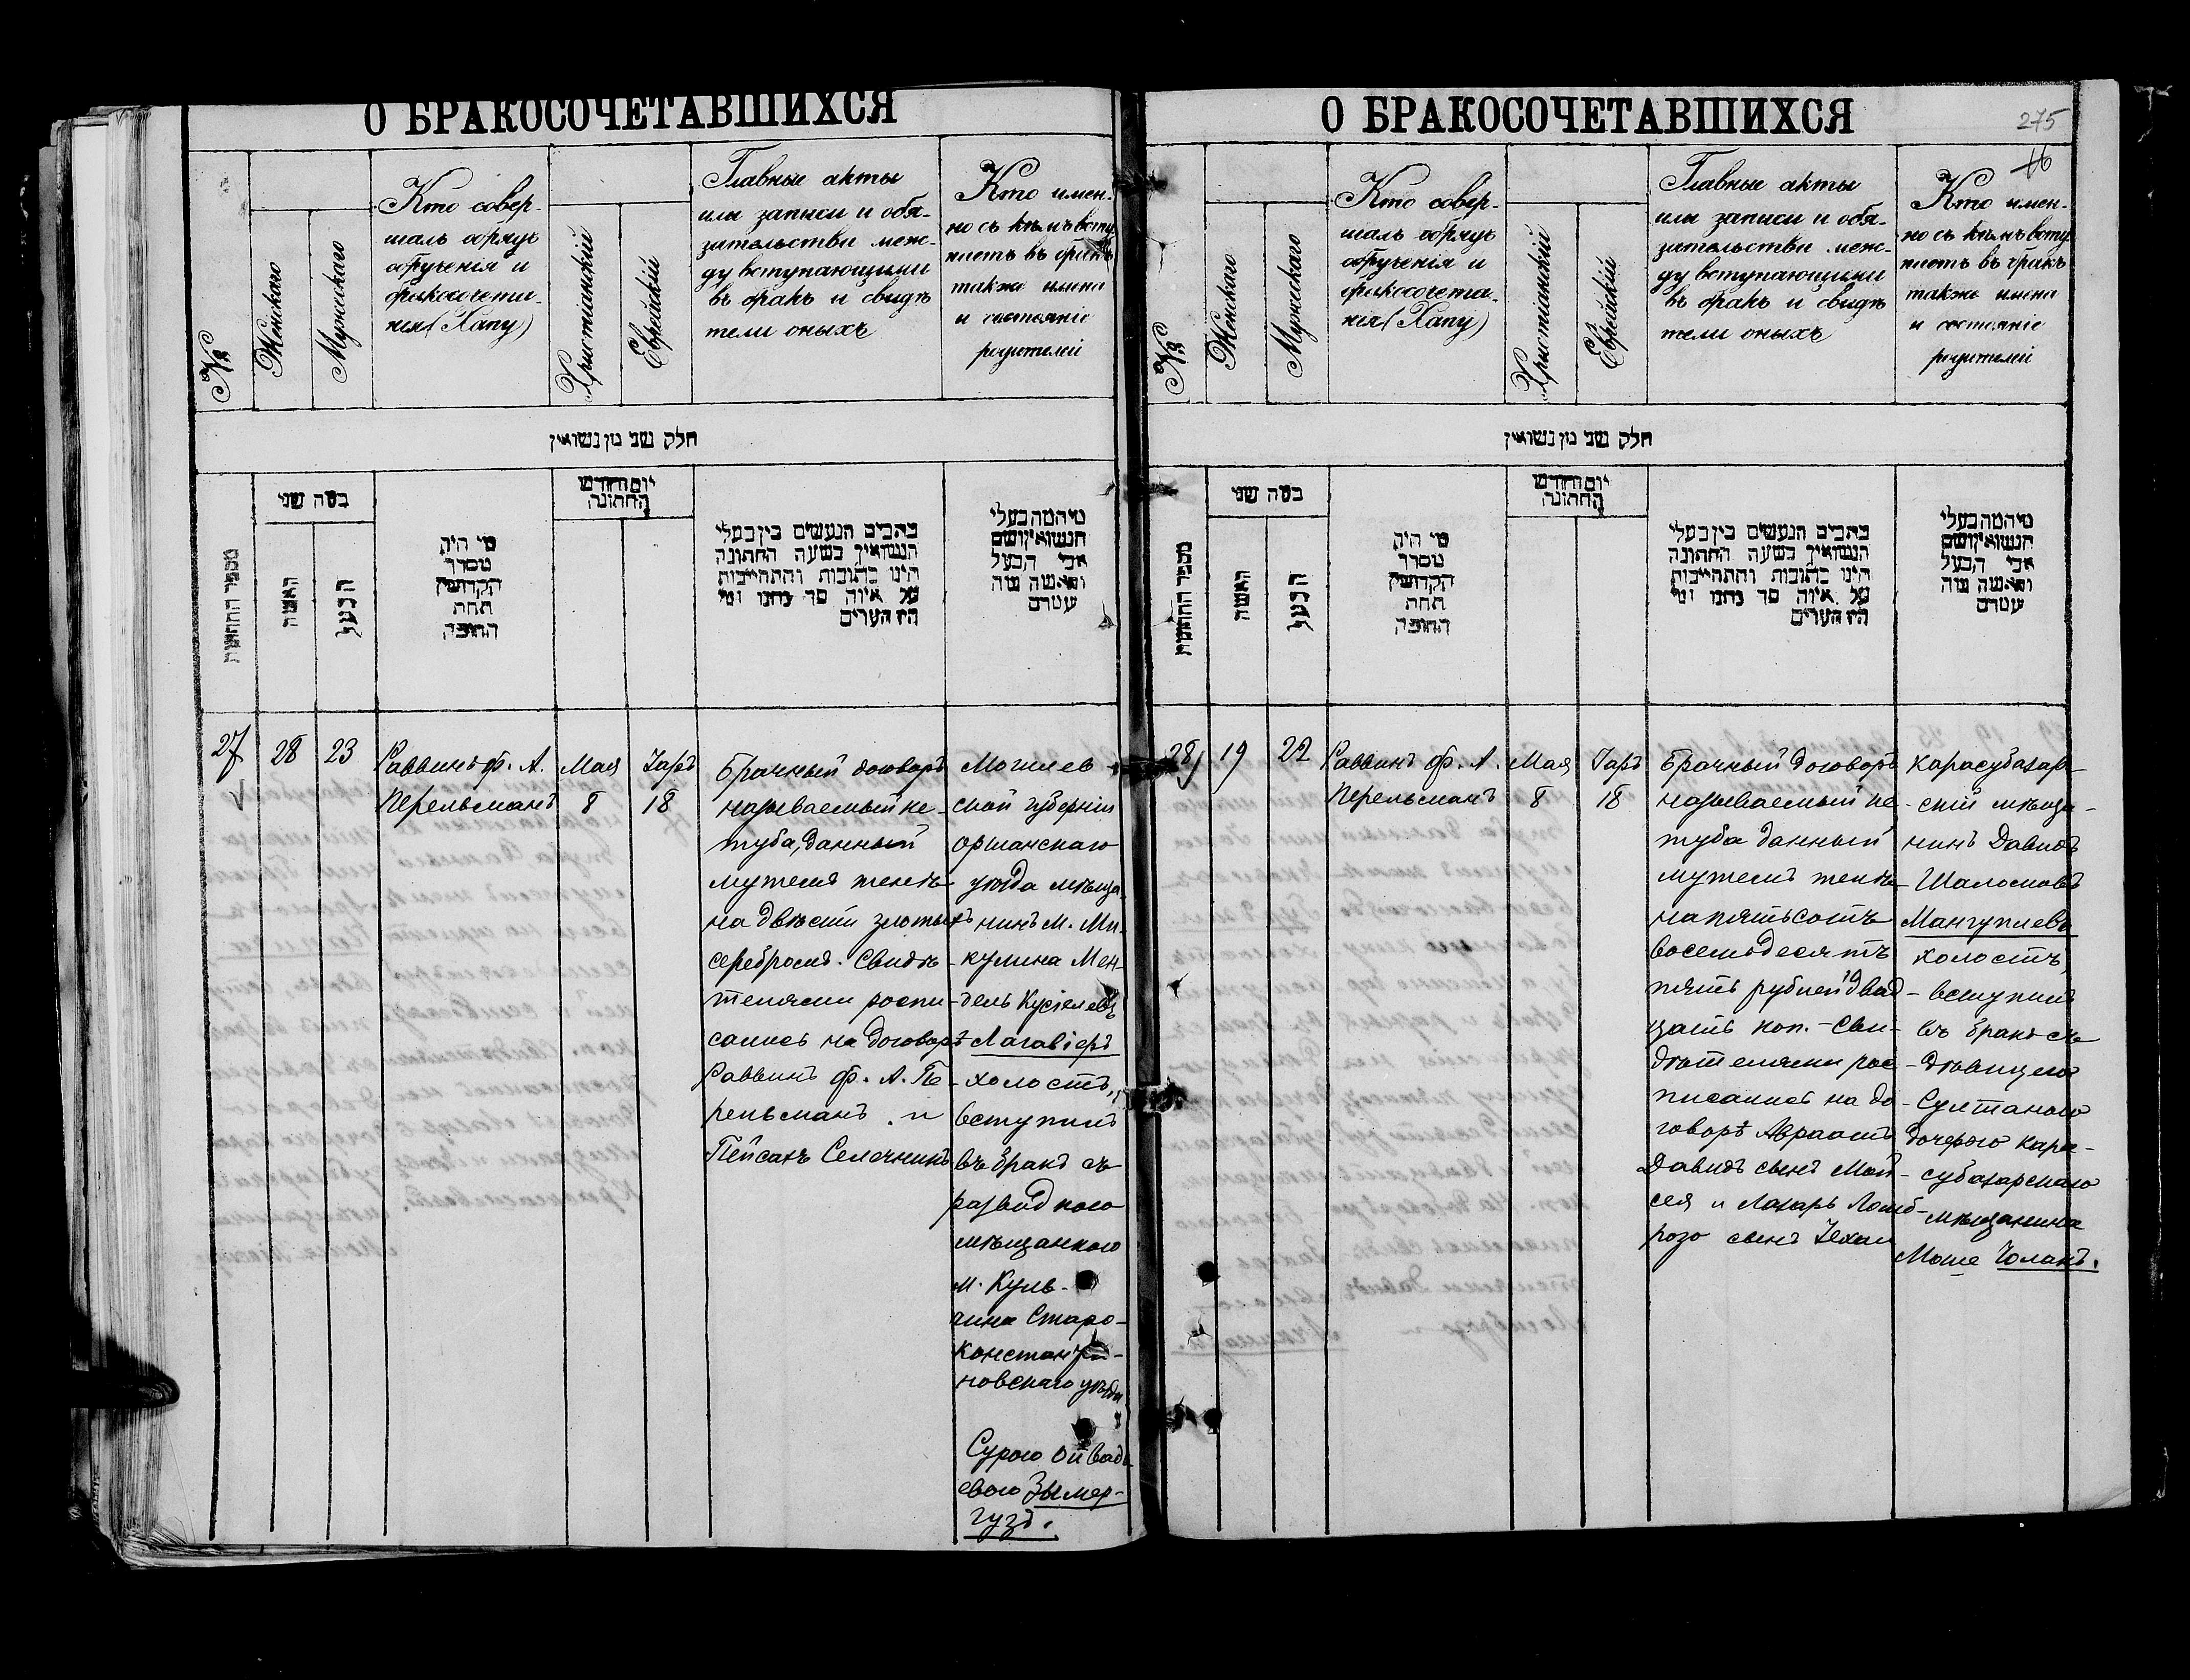 О БРАКОСОЧЕТАВШИХСЯ
№
Женскаго
Мужескаго
Кто совер-
шалъ обрядъ
обрученія и
бракосочета-
нія (Хапу)
Христіанскій
Еврейскій
Главные акты
или записи и обя-
зательства меж-
ду вступающими
въ бракъ и свидѣ
тели оныхъ
Кто имен-
но съ кѣмъ всту
паетъ въ бракъ
также имена
и состояніе
родителей
חלק שני מן נשואין
מספר החתונות
כמה שני
האשה
הבעל
מי היה
מסדר
הקדושין
תחת
החופה
יום וחודש
החתונה
כתבים הנעשים בין בעלי
הנשואין בשעה החתונה
היינו כתובות והתחייבות
על איזה סך נתנו ומי
היו העדים
מי המה בעלי
הנשואין ושם
אבי הבעל
והאשה ומה
עטרם
27
28
23
Раввинъ ф. А.
Перельманъ
Мая
8
Іаръ
18
Брачный договоръ
называемый ке-
туба, данный
мужемъ женѣ
на двѣсти злотыхъ
серебромъ. Свидѣ-
телями роспи-
сались на договорѣ
Раввинъ ф. А. Пе-
рельманъ и
Пейсахъ Селечникъ
Могилев-
ской губерніи
оршанскаго
уѣзда мѣща-
нинъ м. Ми-
кулина Мен-
дель Кусіелевъ
Лагавіеръ
холостъ,
вступилъ
въ бракъ съ
разводною
мѣщанкою
м. Куль-
чина Старо-
констант-
новскаго уѣзда
Сурою
евою Зымер-
гузъ.
О БРАКОСОЧЕТАВШИХСЯ
275
16
№
Женскаго
Мужескаго
Кто совер-
шалъ обрядъ
обрученія и
бракосочета-
нія (Хапу)
Христіанскій
Еврейскій
Главные акты
или записи и обя-
зательства меж-
ду вступающими
въ бракъ и свидѣ
тели оныхъ
Кто имен-
но съ кѣмъ всту
паетъ въ бракъ
также имена
и состояніе
родителей
חלק שני מן נשואין
מספר החתונות
כמה שני
האשה
הבעל
מי היה
מסדר
הקדושין
תחת
החופה
יום וחודש
החתונה
כתבים הנעשים בין בעלי
הנשואין בשעה החתונה
היינו כתובות והתחייבות
על איזה סך נתנו ומי
היו העדים
מי המה בעלי
הנשואין ושם
אבי הבעל
והאשה ומה
עטרם
28
19
22
Раввинъ ф. А.
Перельманъ
Мая
8
Іаръ
18
Брачный договоръ
называемый ке-
туба данный
мужемъ женѣ
на пятьсотъ
восемьдесятъ
пять рублей двад-
цать коп. - Сви-
дѣтелями рос-
писались на до-
говорѣ Авраамъ
Давидъ сынъ Мои-
сея и Лазарь Ломб-
розо сынъ Іехаи
Карасубазар-
скій мѣща-
нинъ Давидъ
Шаломовъ
Мангупіевъ
холостъ,
вступилъ
въ бракъ съ
дѣвицею
Султаною
дочерью кара-
субазарскаго
мѣщанина
Моше Чолакъ.